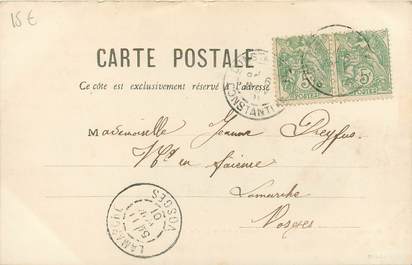 15€
CARTE POSTALE
Ce côté est exclusivement réservé à l'adresse
Mademoiselle Jeanne Dreyfus
en faïence
Lamarche
Vosges
CONSTANTINE
5c 5c
LAMARCHE
VOSGES